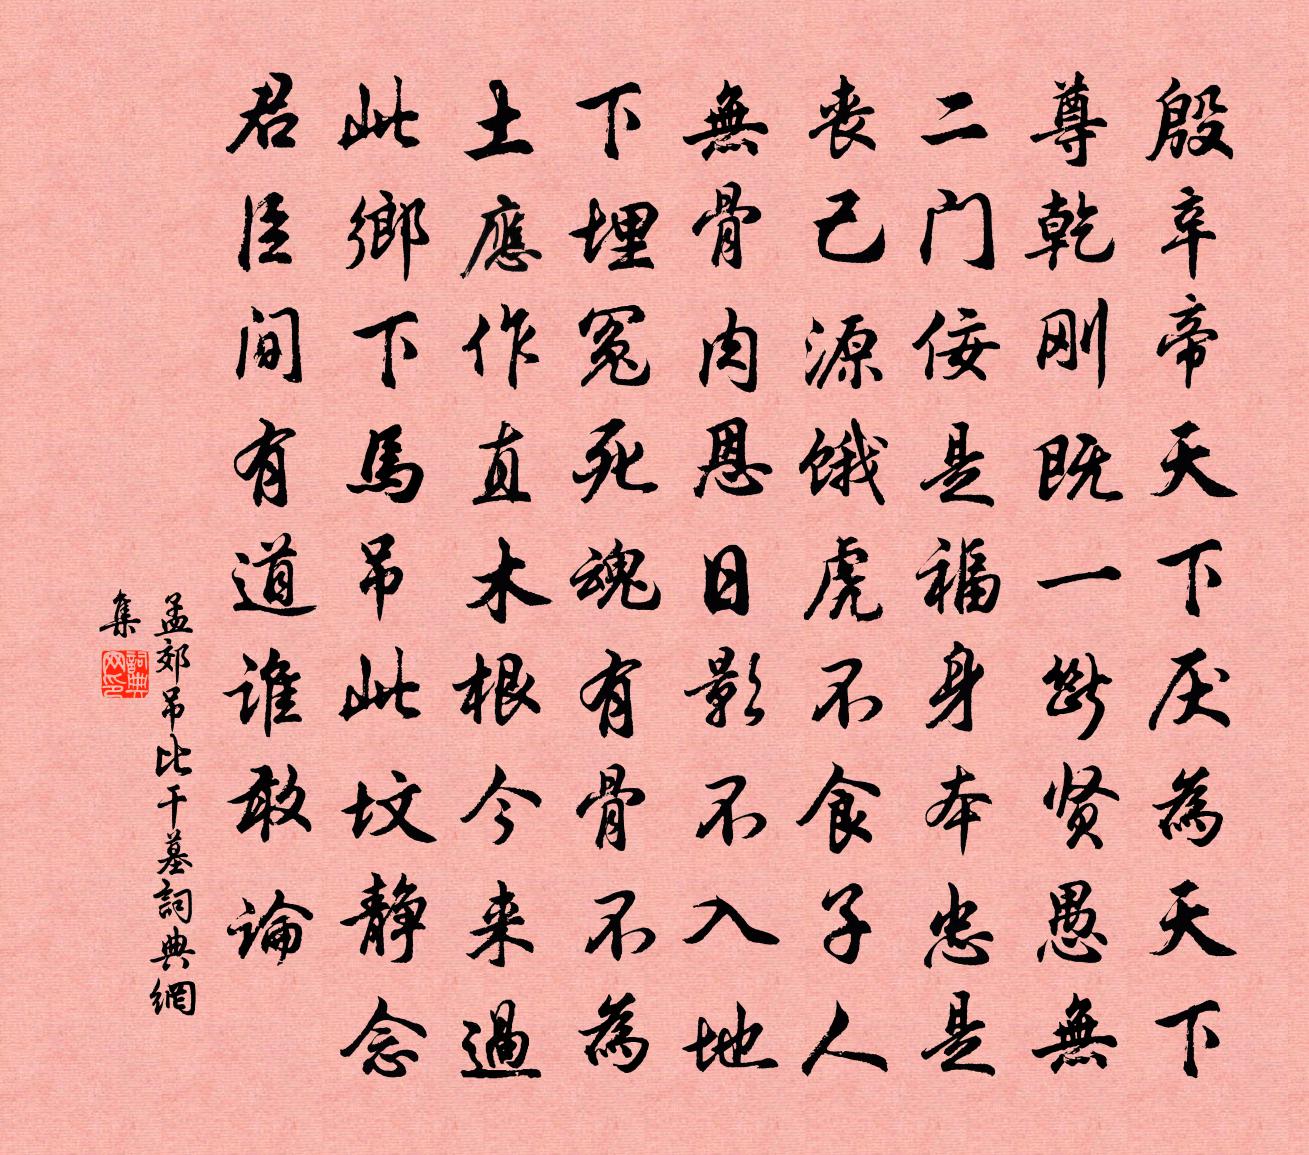 殷辛帝天下厌為天下
尊乾刚既一断贤愚無
二门佞是福身本忠是
丧己源饿虎不食子人
無骨肉恩日影不入地
下埋冤死魂有骨不為
土應作直木根今来過
此鄉下馬吊此坟静念
君臣间有道谁敢論
孟郊吊比干墓詞典網
集
詞典
网印